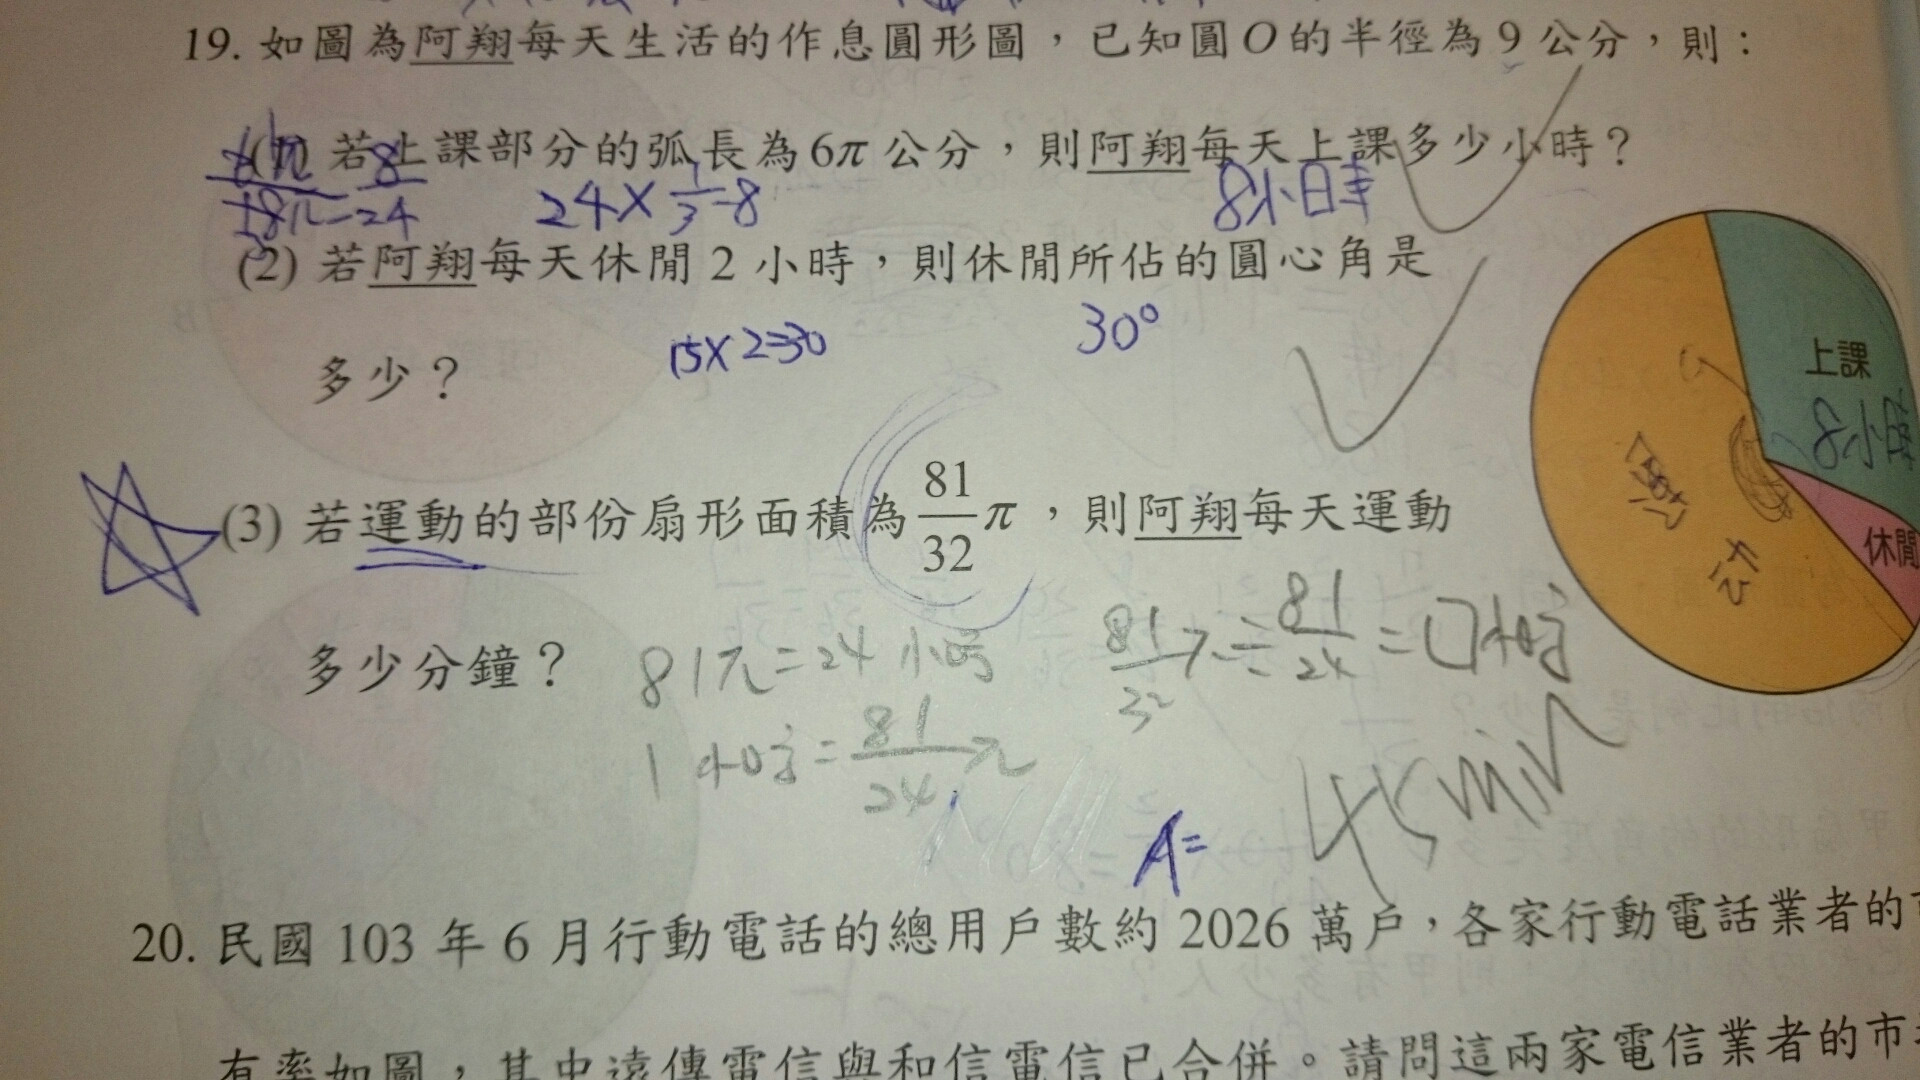 19. 如圖為阿翔每天生活的作息圓形圖，已知圓O的半徑為9公分，則：
(1) 若上課部分的弧長為6π公分，則阿翔每天上課多少小時？
6π/18π=8/24
24×1/3=8
8小時
(2) 若阿翔每天休閒2小時，則休閒所佔的圓心角是
多少？
15×2=30
30°
上課
休閒
(3) 若運動的部份扇形面積為81/32π，則阿翔每天運動
多少分鐘？
81π=24小時
1小時=81/24π
81/32π÷81/24=□小時
A=
45min
20. 民國103年6月行動電話的總用戶數約2026萬戶，各家行動電話業者的市
有率如圖，其中遠傳電信與和信電信已合併。請問這兩家電信業者的市